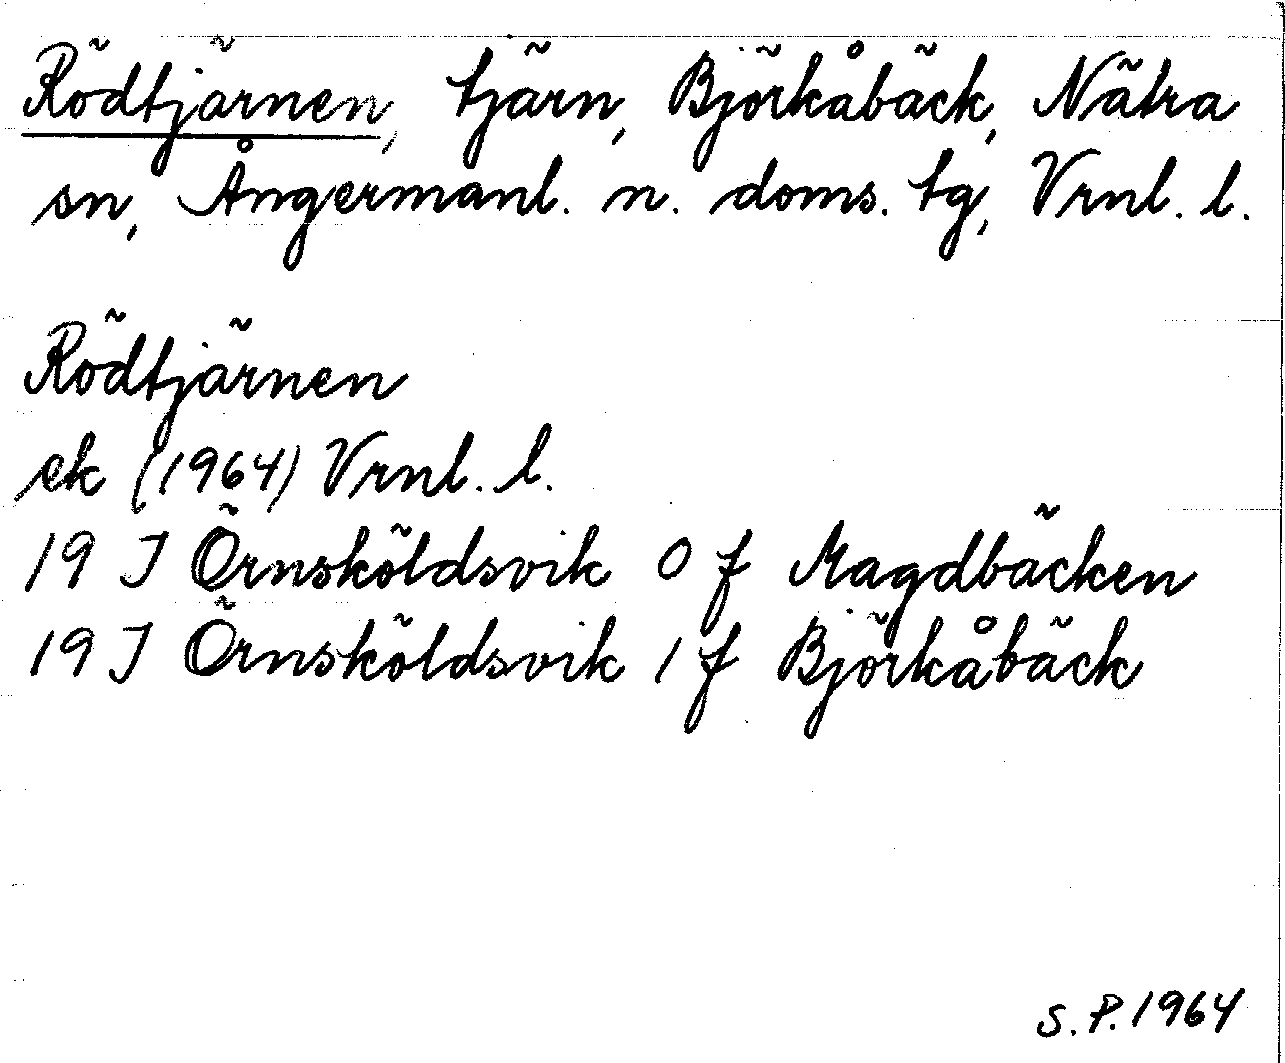 Rödtjärnen, tjärn, Björkåbäck, Nätra
sn, Ångermanl. n. doms. tg, Vrnl. l.
Rödtjärnen
ek (1964) Vrnl. l.
19 I Örnsköldsvik 0 f Magdbäcken
19 I Örnsköldsvik 1 f Björkåbäck
S.P. 1964